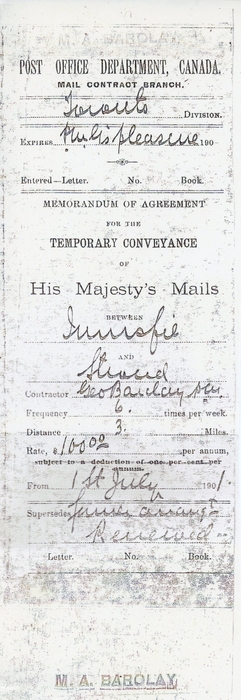 M. A. BAROLAY
POST OFFICE DEPARTMENT, CANADA.
MAIL CONTRACT BRANCH.
Toronto DIVISION.
EXPIRES P.M.G's pleasure 190
Entered—Letter. No. Book.
MEMORANDUM OF AGREEMENT
FOR THE
TEMPORARY CONVEYANCE
OF
His Majesty's Mails
BETWEEN
Innisfil
AND
Stroud
Contractor Geo Barclay
Frequency 6 times per week.
Distance 3 Miles.
Rate, $100.00 per annum,
subject to a deduction of one per cent per
annum.
From 1st July 1901.
Supersedes former arrangt
Renewed
Letter. No. Book.
M. A. BAROLAY